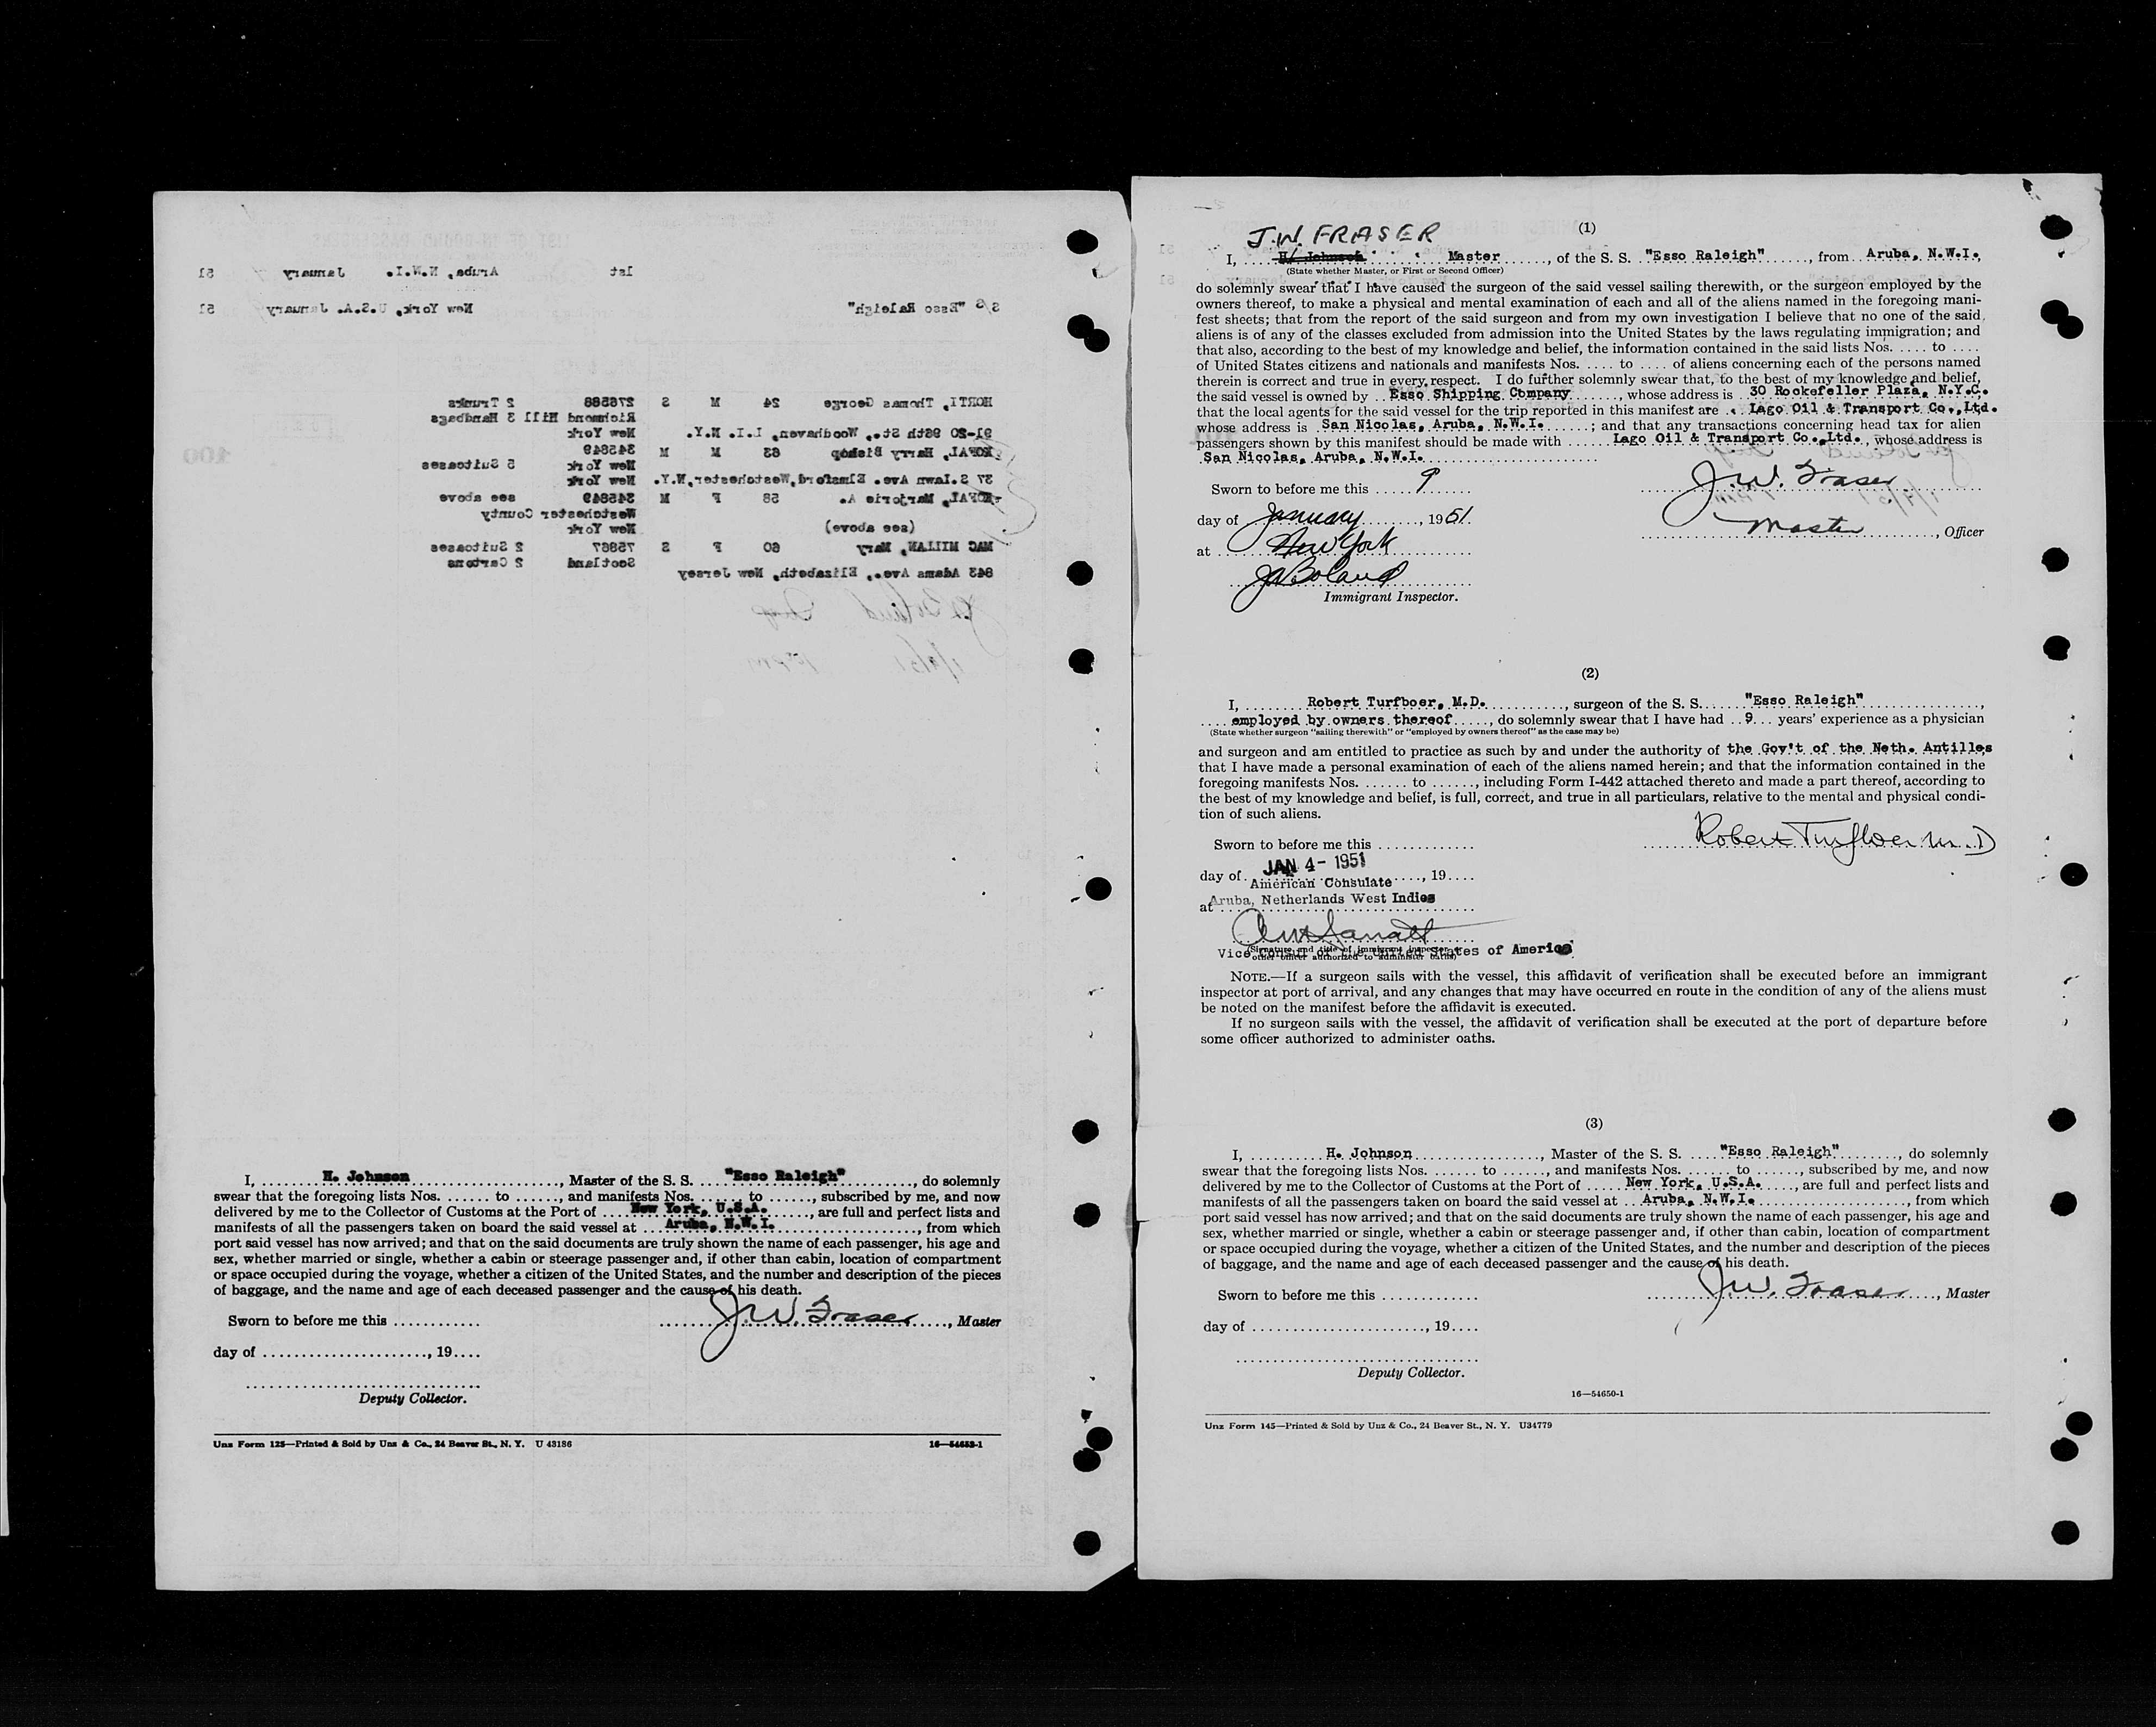 1st Aruba, N.W.I. January 51
S/S "Esso Raleigh" New York, U.S.A. January 51
HORTI, Thomas George 24 M S 276588 2 Trunks
Richmond Hill 3 Handbags
91-20 96th St., Woodhaven, L.I. N.Y. New York
KOFAL, Harry Bishop 63 M M 345849
New York 5 Suitcases
37 S.Lawn Ave. Elmsford,Westchester,N.Y. New York
KOFAL, Marjorie A. 58 F M 345849 see above
Westchester County
(see above) New York
MAC MILLAN, Mary 60 F S 75867 2 Suitcases
Scotland 2 Cartons
843 Adams Ave., Elizabeth, New Jersey
100
I, H. Johnson, Master of the S. S. "Esso Raleigh", do solemnly
swear that the foregoing lists Nos. ....... to ......, and manifests Nos. ....... to ......, subscribed by me, and now
delivered by me to the Collector of Customs at the Port of New York, U.S.A., are full and perfect lists and
manifests of all the passengers taken on board the said vessel at Aruba, N.W.I., from which
port said vessel has now arrived; and that on the said documents are truly shown the name of each passenger, his age and
sex, whether married or single, whether a cabin or steerage passenger and, if other than cabin, location of compartment
or space occupied during the voyage, whether a citizen of the United States, and the number and description of the pieces
of baggage, and the name and age of each deceased passenger and the cause of his death.
Sworn to before me this ............ J.W. Fraser, Master
day of ......................, 19....
Deputy Collector.
Unz Form 125—Printed & Sold by Unz & Co., 24 Beaver St., N. Y. U 43186 16—54653-1
(1)
J.W. FRASER
I, H. Johnson Master, of the S. S. "Esso Raleigh", from Aruba, N.W.I.,
(State whether Master, or First or Second Officer)
do solemnly swear that I have caused the surgeon of the said vessel sailing therewith, or the surgeon employed by the
owners thereof, to make a physical and mental examination of each and all of the aliens named in the foregoing mani-
fest sheets; that from the report of the said surgeon and from my own investigation I believe that no one of the said
aliens is of any of the classes excluded from admission into the United States by the laws regulating immigration; and
that also, according to the best of my knowledge and belief, the information contained in the said lists Nos. ..... to ....
of United States citizens and nationals and manifests Nos. .... to .... of aliens concerning each of the persons named
therein is correct and true in every respect. I do further solemnly swear that, to the best of my knowledge and belief,
the said vessel is owned by Esso Shipping Company, whose address is 30 Rockefeller Plaza, N.Y.C.
that the local agents for the said vessel for the trip reported in this manifest are Lago Oil & Transport Co.,Ltd.
whose address is San Nicolas, Aruba, N.W.I.; and that any transactions concerning head tax for alien
passengers shown by this manifest should be made with Lago Oil & Transport Co.,Ltd., whose address is
San Nicolas, Aruba, N.W.I.
Sworn to before me this 9 J.W. Fraser
day of January, 1951. Master, Officer
at New York
JABoland
Immigrant Inspector.
(2)
I, Robert Turfboer, M.D., surgeon of the S. S. "Esso Raleigh",
employed by owners thereof, do solemnly swear that I have had 9 years' experience as a physician
(State whether surgeon "sailing therewith" or "employed by owners thereof" as the case may be)
and surgeon and am entitled to practice as such by and under the authority of the Gov't of the Neth. Antilles
that I have made a personal examination of each of the aliens named herein; and that the information contained in the
foregoing manifests Nos. ....... to ......, including Form I-442 attached thereto and made a part thereof, according to
the best of my knowledge and belief, is full, correct, and true in all particulars, relative to the mental and physical condi-
tion of such aliens.
Sworn to before me this ............. Robert Turfboer M.D
JAN 4- 1951
day of ......, 19....
American Consulate
at Aruba, Netherlands West Indies
Vice Consul of the United States of America
(Signature and title of immigrant inspector or
other officer authorized to administer oaths)
NOTE.—If a surgeon sails with the vessel, this affidavit of verification shall be executed before an immigrant
inspector at port of arrival, and any changes that may have occurred en route in the condition of any of the aliens must
be noted on the manifest before the affidavit is executed.
If no surgeon sails with the vessel, the affidavit of verification shall be executed at the port of departure before
some officer authorized to administer oaths.
(3)
I, H. Johnson, Master of the S. S. "Esso Raleigh", do solemnly
swear that the foregoing lists Nos. ....... to ......, and manifests Nos. ....... to ......, subscribed by me, and now
delivered by me to the Collector of Customs at the Port of New York, U.S.A., are full and perfect lists and
manifests of all the passengers taken on board the said vessel at Aruba, N.W.I., from which
port said vessel has now arrived; and that on the said documents are truly shown the name of each passenger, his age and
sex, whether married or single, whether a cabin or steerage passenger and, if other than cabin, location of compartment
or space occupied during the voyage, whether a citizen of the United States, and the number and description of the pieces
of baggage, and the name and age of each deceased passenger and the cause of his death.
Sworn to before me this ............. J.W. Fraser, Master
day of ......................, 19....
Deputy Collector.
16—54650-1
Unz Form 145—Printed & Sold by Unz & Co., 24 Beaver St., N. Y. U34779